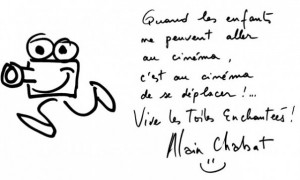 Quand les enfants
ne peuvent aller
au cinéma,
c'est au cinéma
de se déplacer !...
Vive les Toiles Enchantées !
Alain Chabat